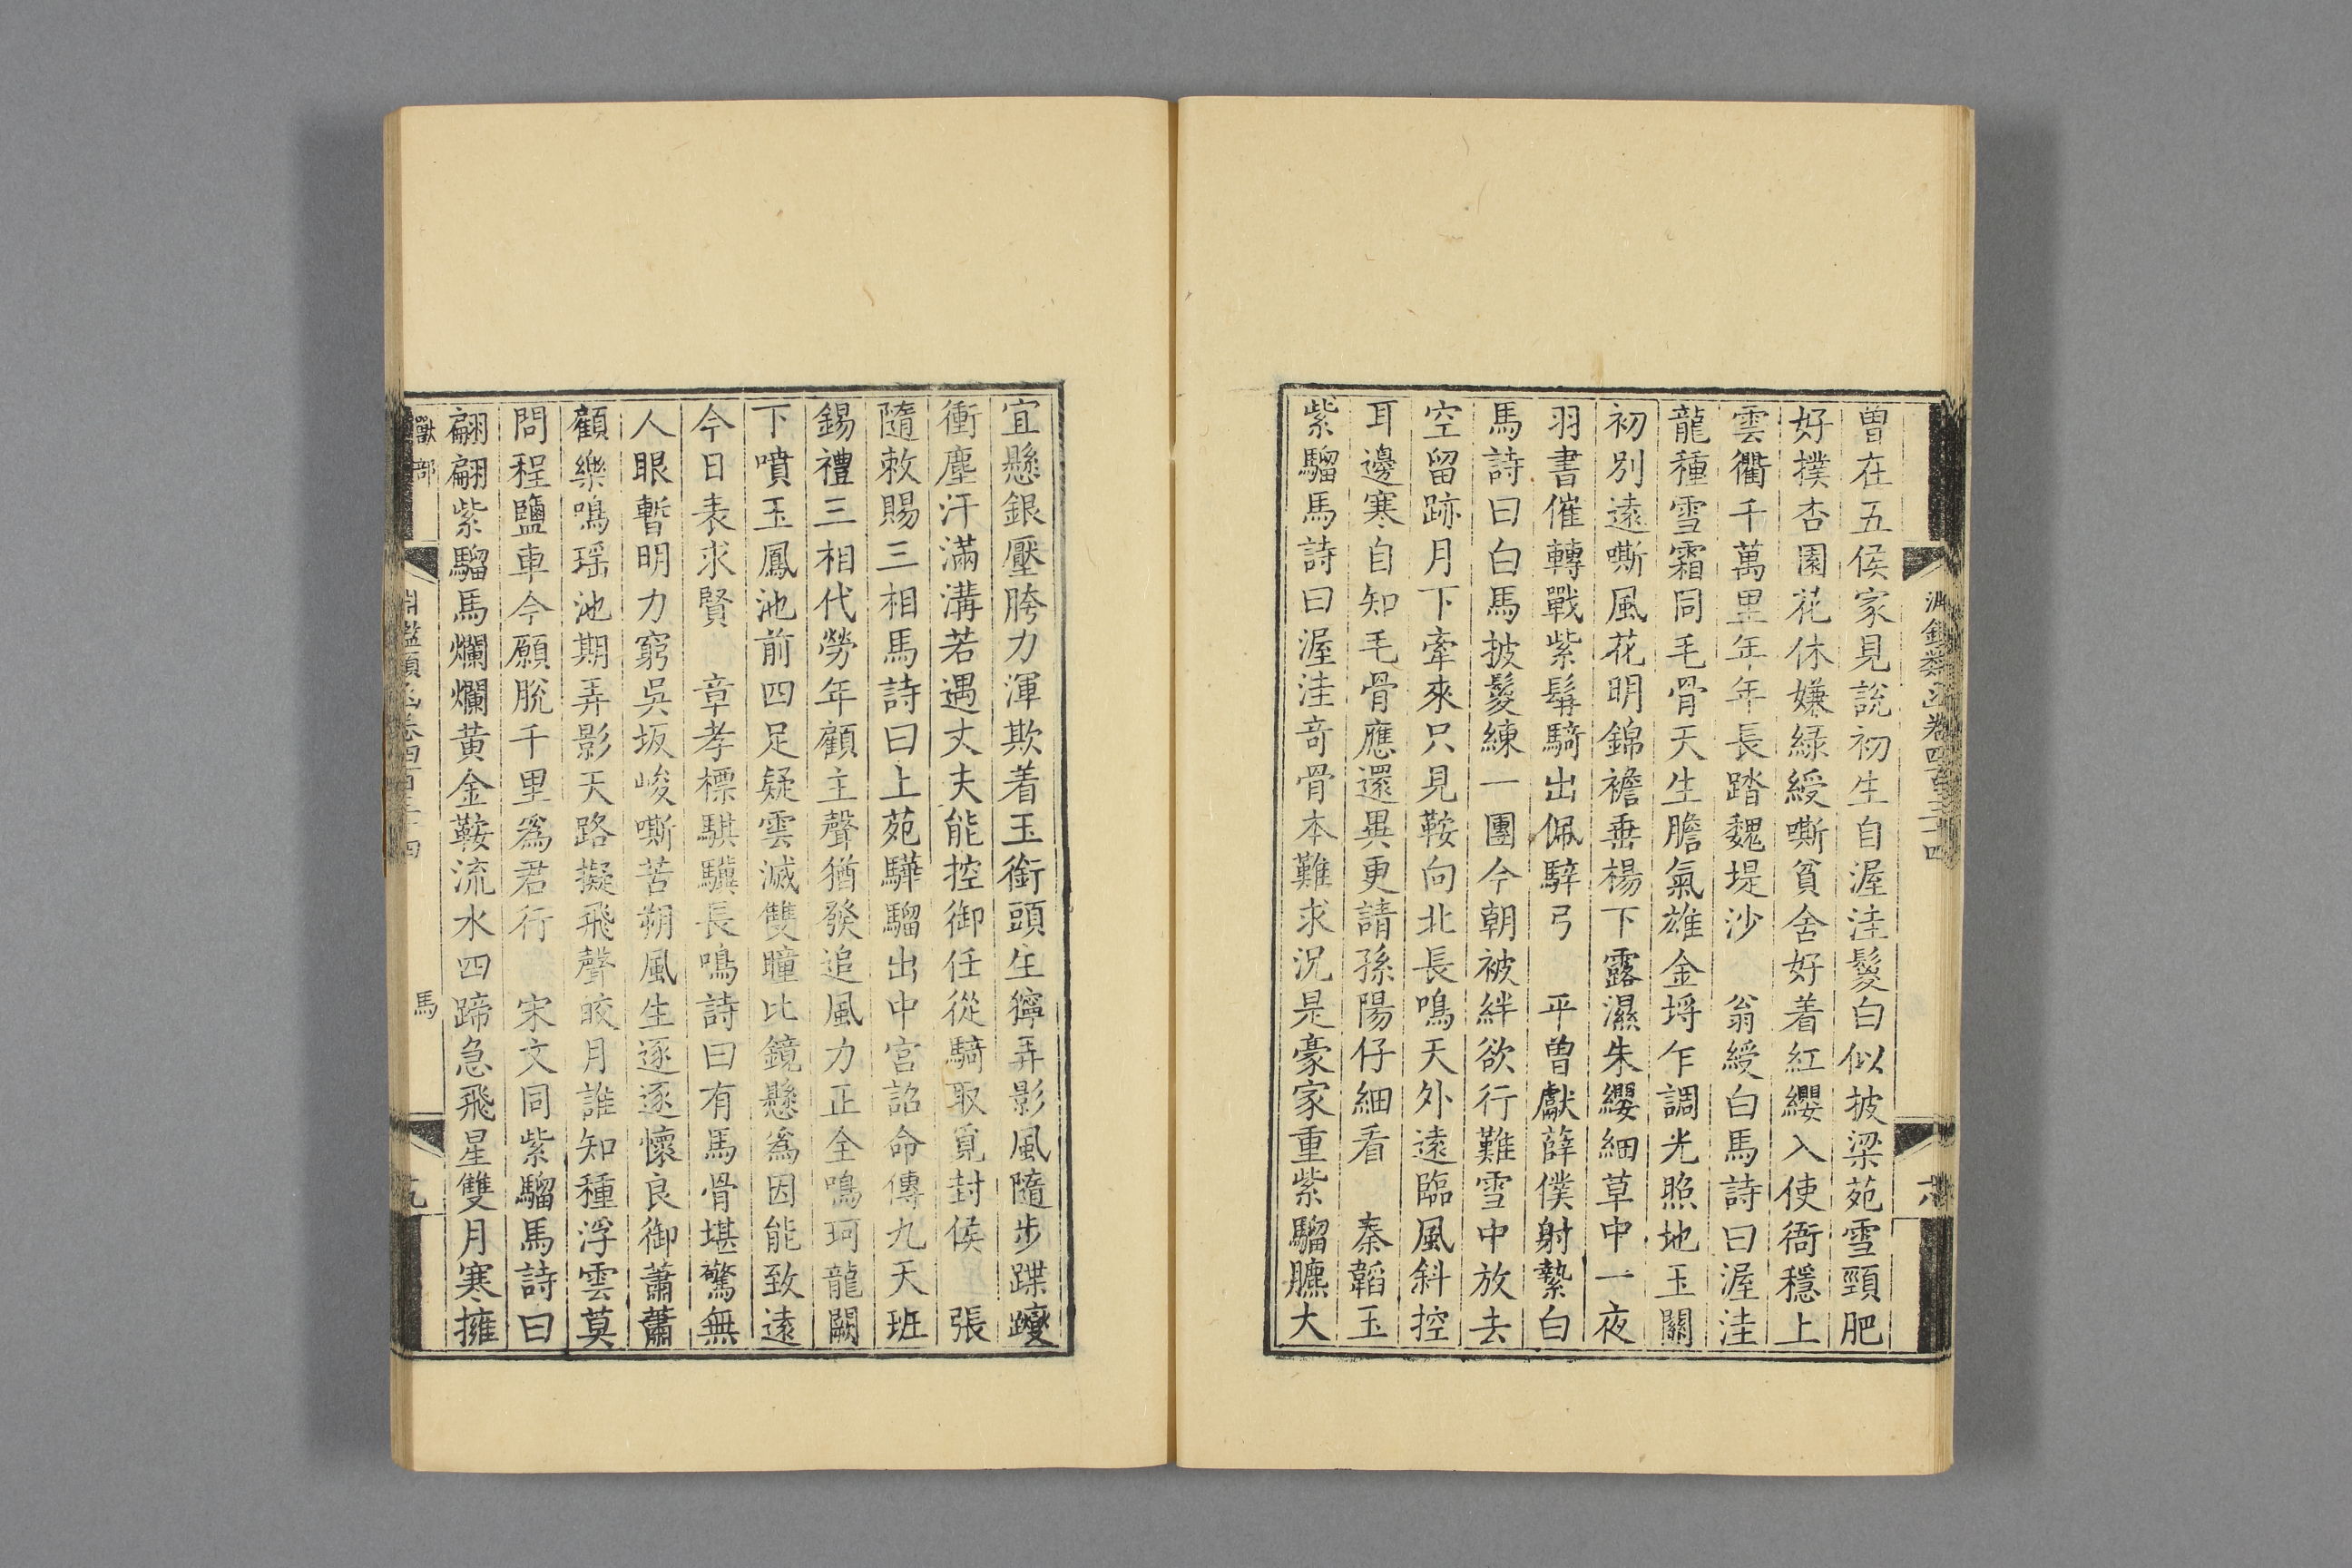 淵鑑類函卷四百三十四
曾在五侯家見說初生自渥洼鬉白似披梁苑雪頸肥
好撲杏園花休嫌緑綬嘶貧舍好着紅纓入使衙穩上
雲衢千萬里年年長踏魏堤沙 翁綬白馬詩曰渥洼
龍種雪霜同毛骨天生膽氣雄金埒乍調光照地玉關
初別遠嘶風花明錦襜垂楊下露濕朱纓細草中一夜
羽書催轉戰紫髯騎出佩騂弓 平曾獻薛僕射縶白
馬詩曰白馬披鬉練一團今朝被絆欲行難雪中放去
空留跡月下牽來只見鞍向北長鳴天外遠臨風斜控
耳邊寒自知毛骨應還異更請孫陽仔細看 秦韜玉
紫騮馬詩曰渥洼竒骨本難求況是豪家重紫騮臕大
宜懸銀壓胯力渾欺着玉銜頭生獰弄影風隨步躞蹀
衝塵汗滿溝若遇丈夫能控御任從騎取覓封侯 張
隨敕賜三相馬詩曰上苑驊騮出中宫詔命傳九天班
錫禮三相代勞年顧主聲猶發追風力正全鳴珂龍闕
下噴玉鳳池前四足疑雲滅雙瞳比鏡懸爲因能致遠
今日表求賢 章孝標騏驥長鳴詩曰有馬骨堪驚無
人眼暫明力窮吳坂峻嘶苦朔風生逐逐懷良御蕭蕭
顧樂鳴瑶池期弄影天路擬飛聲皎月誰知種浮雲莫
問程鹽車今願脫千里爲君行 宋文同紫騮馬詩曰
翩翩紫騮馬爛爛黄金鞍流水四蹄急飛星雙月寒擁
獸部 淵鑑類函卷四百三十四 馬